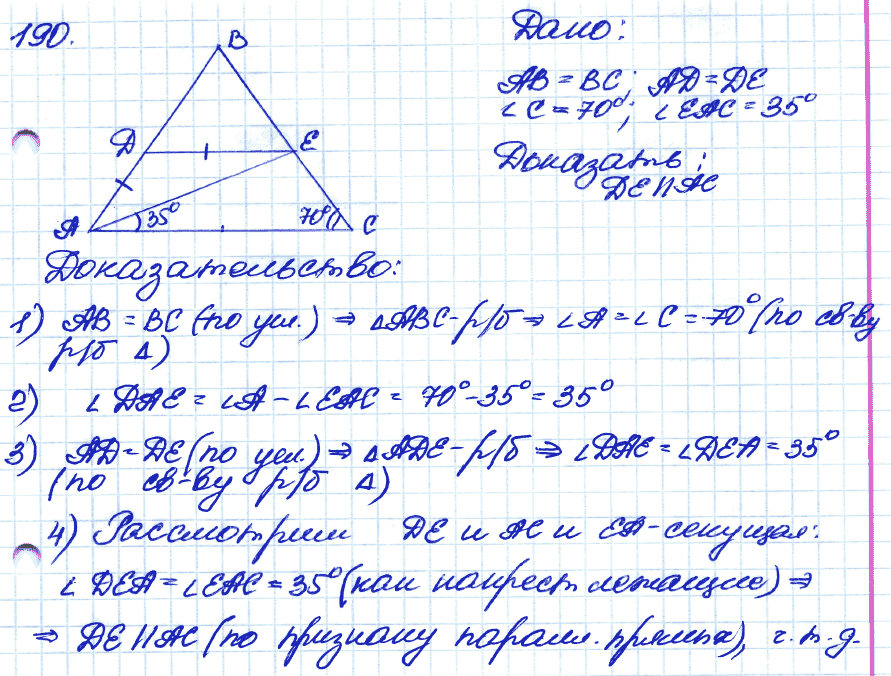 190.
Дано:
AB = BC; AD = DE
∠C = 70°; ∠EAC = 35°
Доказать:
DE || AC
B
D
E
A
35°
70°
C
Доказательство:
1) AB = BC (по усл.) ⇒ ΔABC - р/б ⇒ ∠A = ∠C = 70° (по св-ву
р/б Δ)
2) ∠DAE = ∠A - ∠EAC = 70° - 35° = 35°
3) AD = DE (по усл.) ⇒ ΔADE - р/б ⇒ ∠DAE = ∠DEA = 35°
(по св-ву р/б Δ)
4) Рассмотрим DE и AC и EA - секущая:
∠DEA = ∠EAC = 35° (как накрест лежащие) ⇒
⇒ DE || AC (по признаку паралл. прямых), ч.т.д.